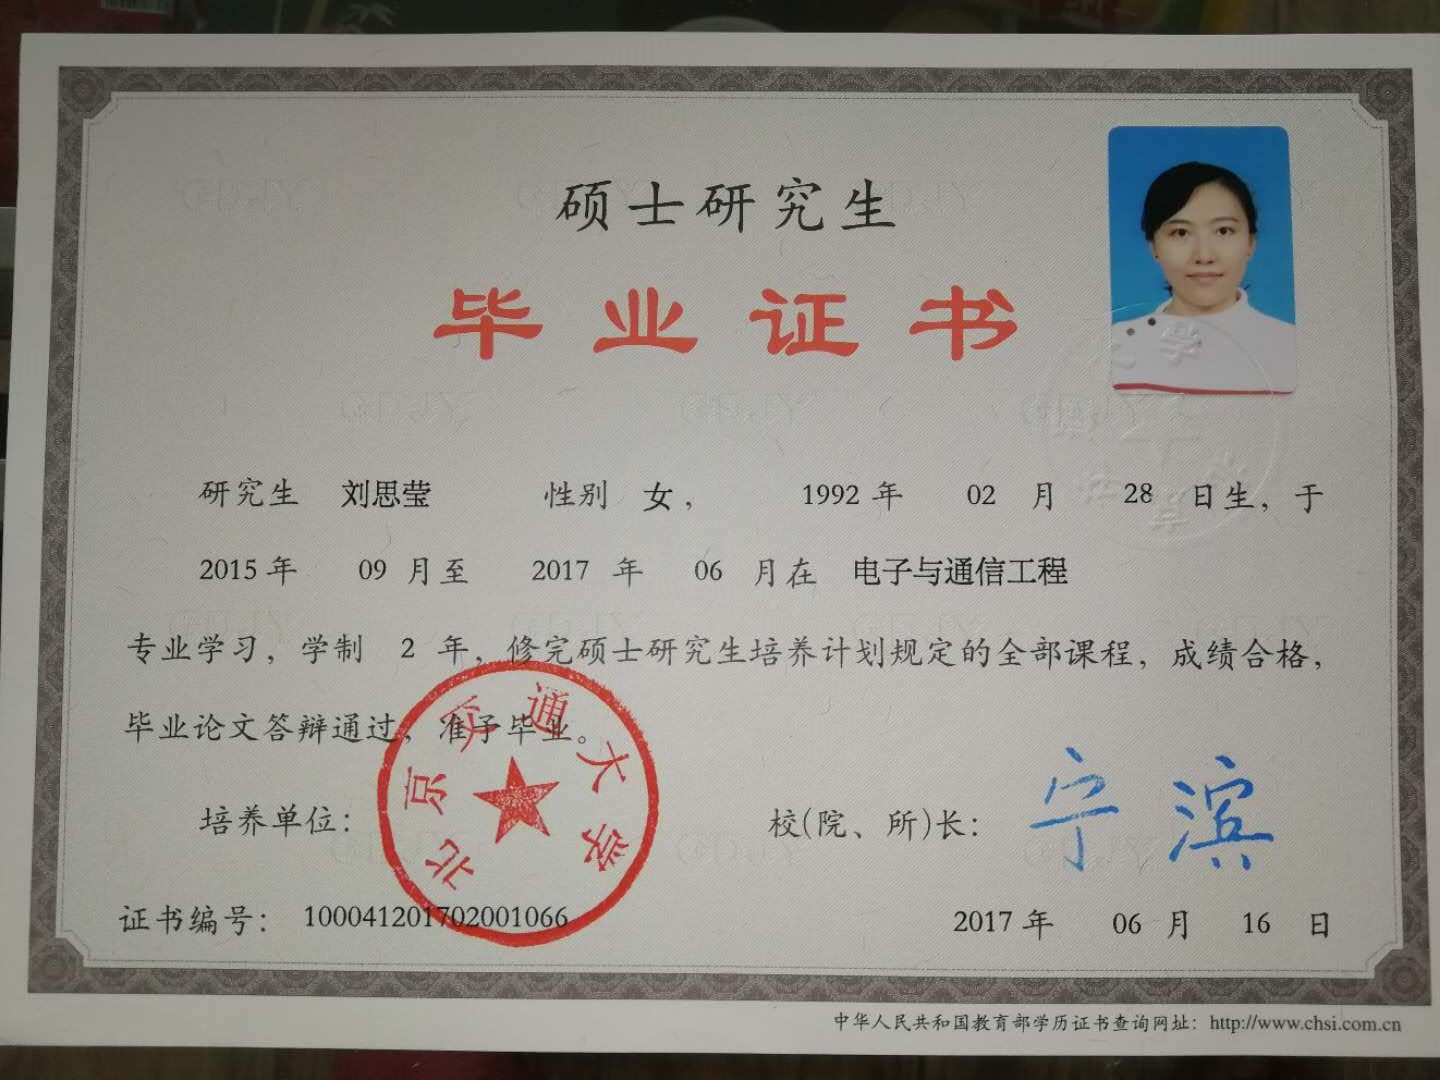 硕士研究生
毕业证书
研究生 刘思莹 性别 女， 1992 年 02 月 28 日生，于
2015 年 09 月至 2017 年 06 月在 电子与通信工程
专业学习，学制 2 年，修完硕士研究生培养计划规定的全部课程，成绩合格，
毕业论文答辩通过，准予毕业。
培养单位：
北京交通大学
校(院、所)长： 宁滨
证书编号： 100041201702001066
2017 年 06 月 16 日
中华人民共和国教育部学历证书查询网址：http://www.chsi.com.cn